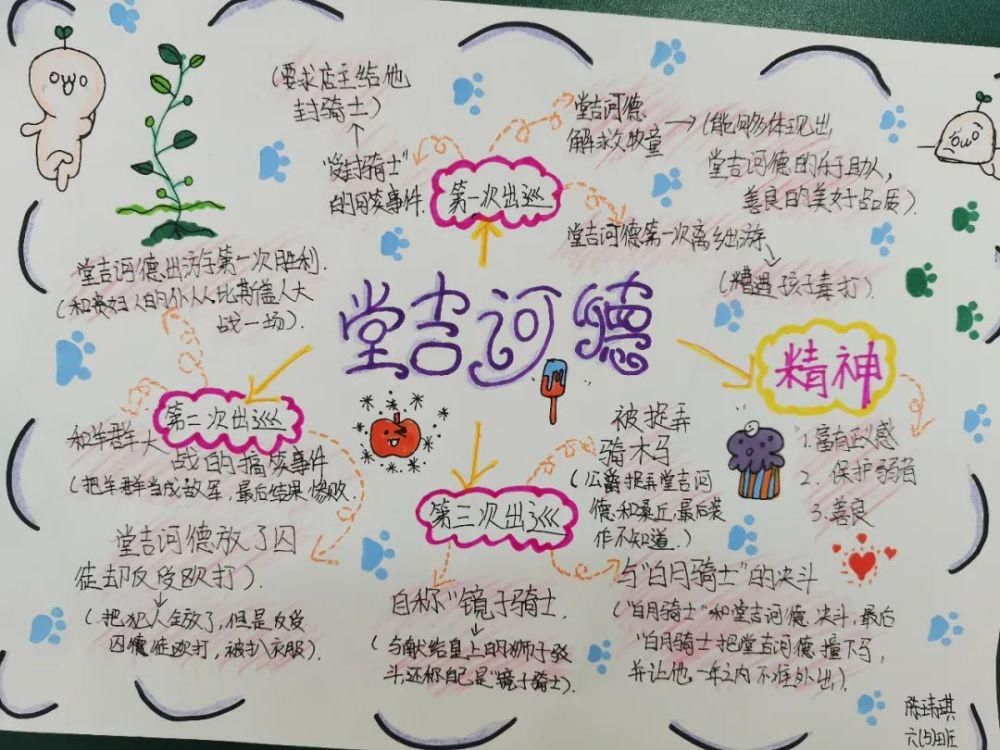 堂吉诃德
第一次出巡
(要求店主给他
封骑士)
"受封骑士"
的闹笑事件.
堂吉诃德
解救牧童
(能够多体现出
堂吉诃德的乐于助人
善良的美好品质).
堂吉诃德第一次离乡出游
(遭遇孩子毒打).
堂吉诃德出游第一次胜利.
战一场).
第二次出巡
和羊群大
战的搞笑事件
(把羊群当成敌军,最后结果惨败.
堂吉诃德放了囚
徒却反受殴打).
(把犯人全放了,但是反受
囚徒殴打,被扒衣服).
第三次出巡
被捉弄
骑木马
(公爵捉弄堂吉诃
德和桑丘.最后装
作不知道.)
自称"镜子骑士
(与献给皇上的狮子驳
斗还称自己是"镜子骑士).
与"白月骑士"的决斗
("白月骑士"和堂吉诃德决斗,最后
"白月骑士把堂吉诃德撞下马,
并让他一年之内不准外出.)
精神
1.富有正义感
2.保护弱者
3.善良
陈玮琪
六(5)班